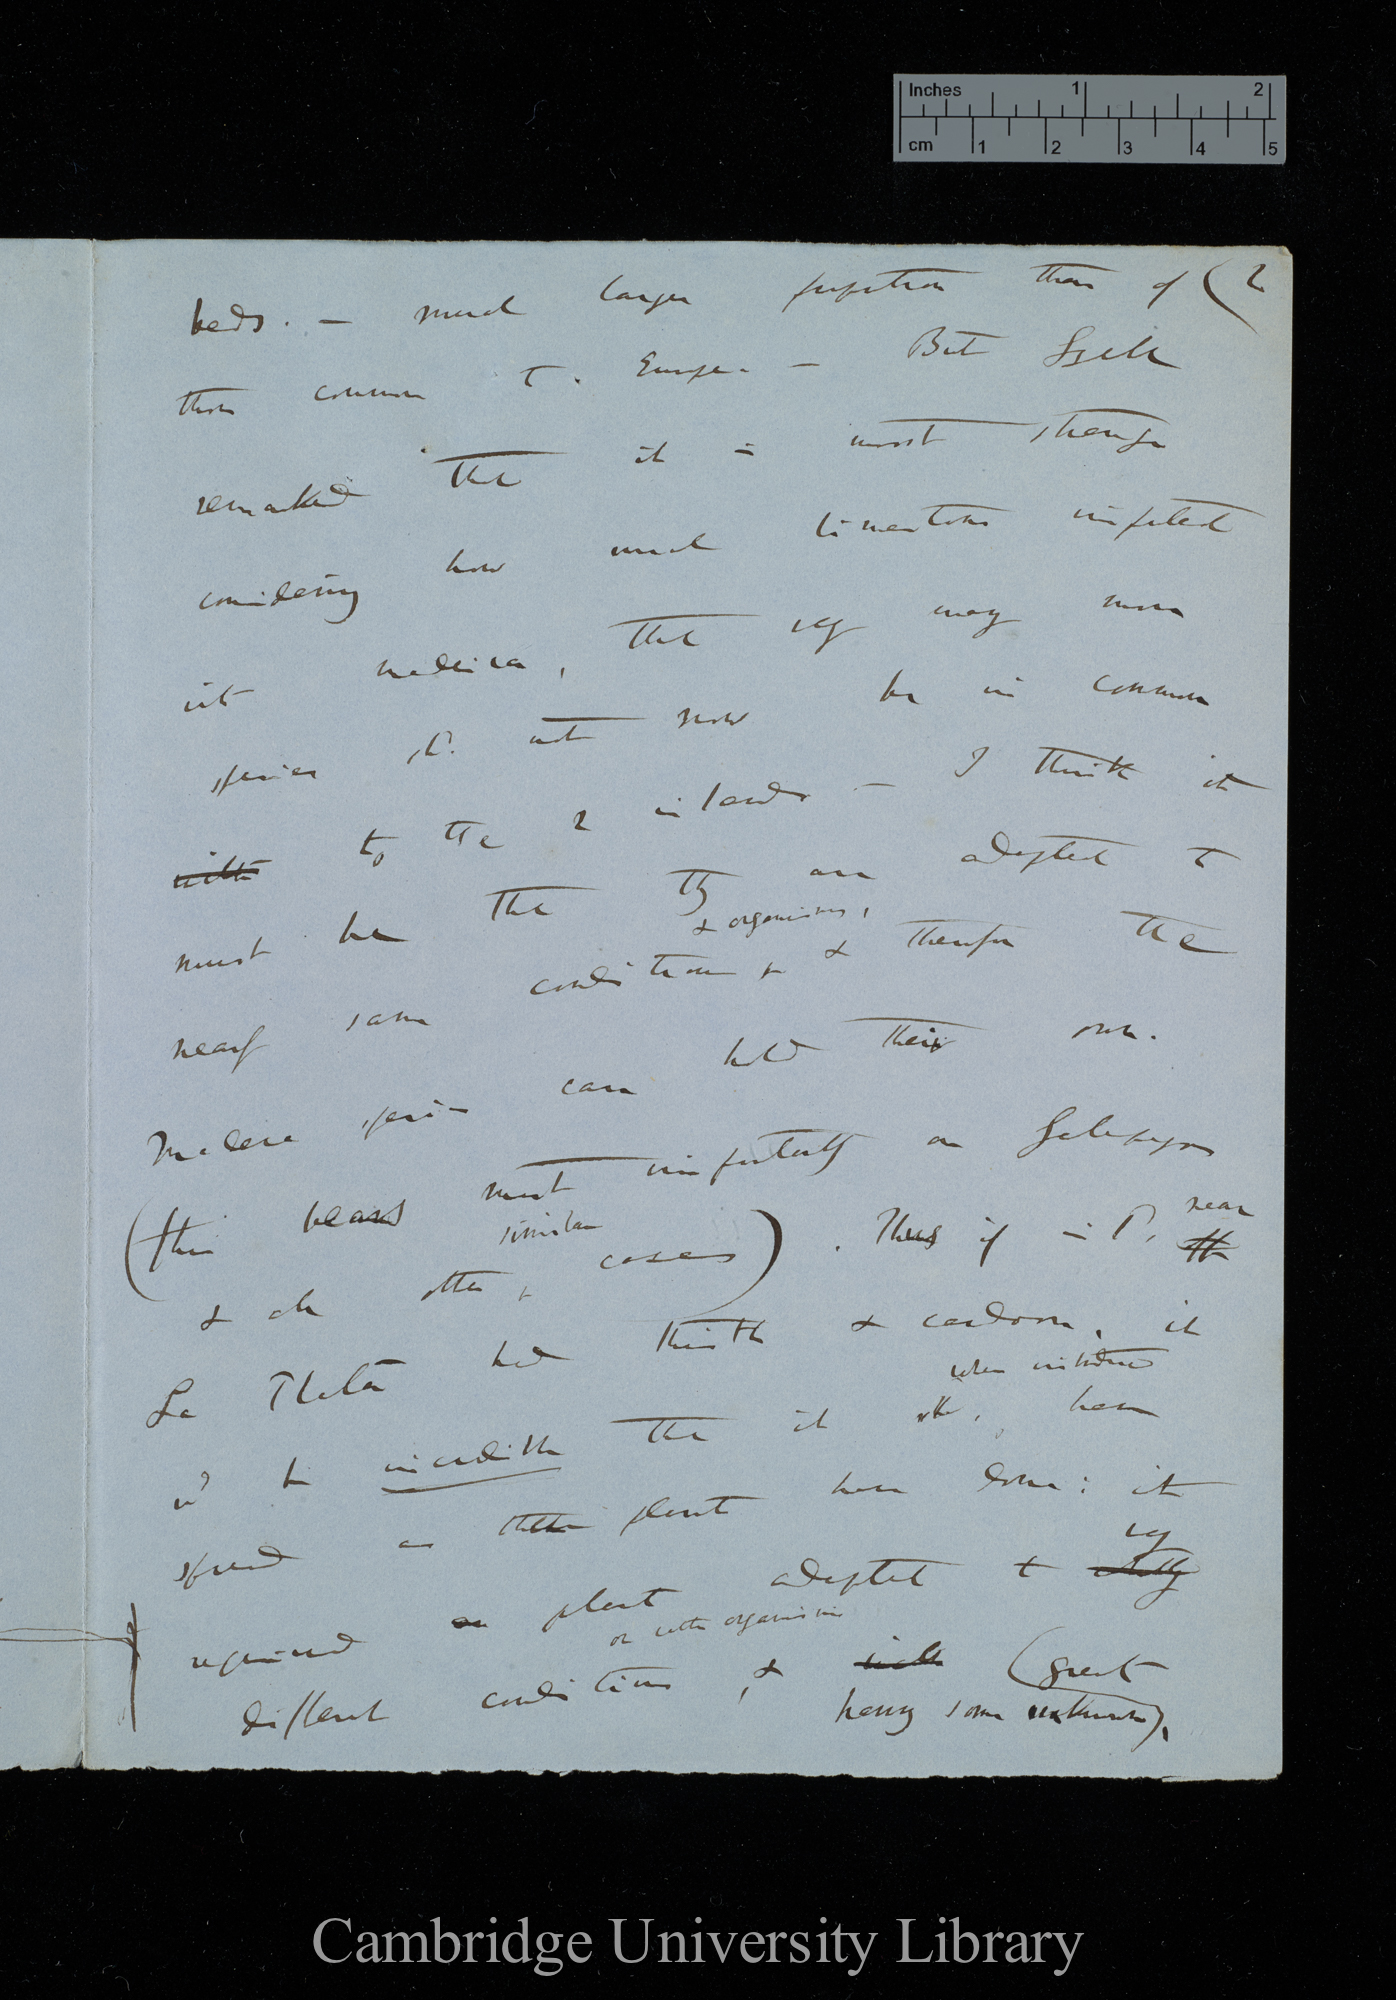 Inches 1 2
cm 1 2 3 4 5
beds. — much larger proportion than of (2
those common to Europe. — But Lyell
remarked that it is most strange
considering how much Limestone
it Madeira, that very many more
species shd. not now be in common
with to the 2 islands — I think it
must be that they are adapted to
& organisms,
nearly same conditions & therefore the
Madeira species can hold their own.
(this bears most importantly on Galapagos
similar
& all other cases). Thus if in P. near
La Plata had thistle & cardoon, it
when introduced
wd be incredible that it have
spread as these plants have done: it
very
required plant adapted to
or with organisms
different conditions, & with (great
being some unknown),
Cambridge University Library